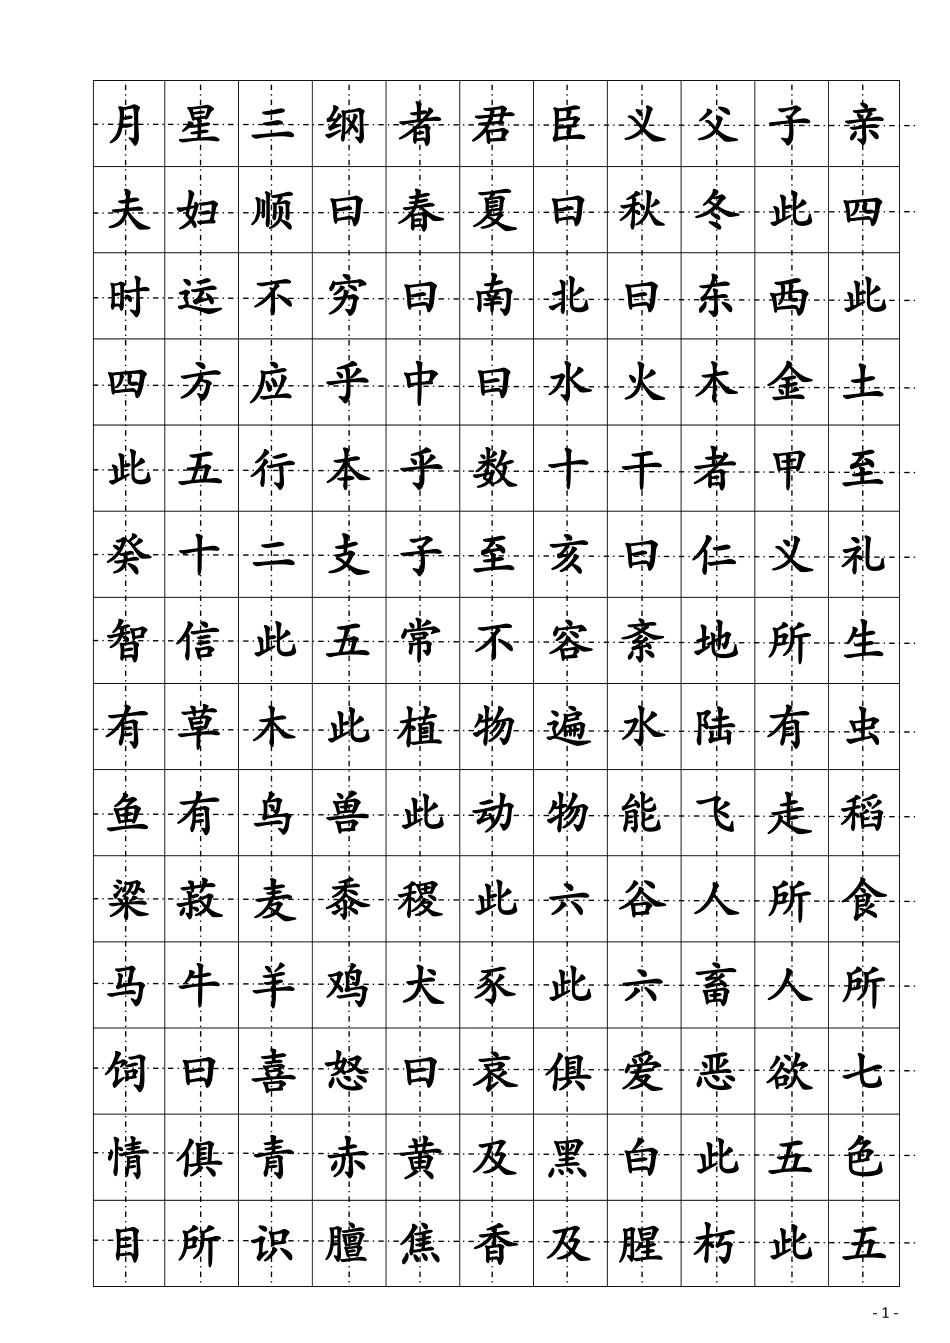 月星三纲者君臣义父子亲
夫妇顺曰春夏曰秋冬此四
时运不穷曰南北曰东西此
四方应乎中曰水火木金土
此五行本乎数十干者甲至
癸十二支子至亥曰仁义礼
智信此五常不容紊地所生
有草木此植物遍水陆有虫
鱼有鸟兽此动物能飞走稻
粱菽麦黍稷此六谷人所食
马牛羊鸡犬豕此六畜人所
饲曰喜怒曰哀俱爱恶欲七
情俱青赤黄及黑白此五色
目所识膻焦香及腥朽此五
- 1 -